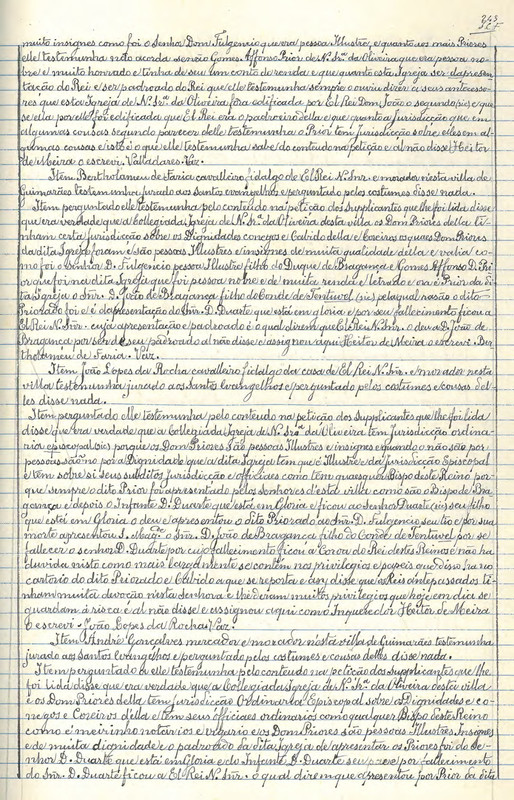 muito insignes como foi o Senhor Dom Fulgencio que era pessoa Illustre, e quanto aos mais Priores
elle testemunha não acorda senão Gomes Affonso Prior de N. Snr.ª da Oliveira que era pessoa no-
bre e muito honrado e tinha de seu um conto de renda e que quanto esta Igreja ser da presen-
tação do Rei e ser padroado do Rei que elle testemunha sempre o ouviu dizer a seus antecesso-
res que esta Igreja de N. Snr.ª da Oliveira fora edificada por El Rei Dom João o segundo (sic) e que
se ella por elle foi edificada que El Rei era o padroeiro della e que quanto a Jurisdicção que em
algumas cousas segundo parecer delle testemunha o Prior tem jurisdicção sobre elles em al-
gumas cousas e isto é o que elle testemunha sabe do conteudo na petição e al não disse Heitor
de Meira o escrevi. Valladares. Vaz.
Item Bertholameu de Faria cavalleiro fidalgo de El Rei N. Snr. e morador nesta villa de
Guimarães testemunha jurado aos santos evangelhos e perguntado pelos costumes disse nada.
Item perguntado elle testemunha pelo conteudo na petição dos Supplicantes que lhe foi lida disse
que era verdade que a Collegiada Igreja de N. Snr.ª da Oliveira desta villa os Dom Priores della ti-
nham certa jurisdicção sobre os Dignidades conegos e Cabido della e Coreiros os quaes Dom Priores
da dita Igreja foram e são pessoas Illustres e insignes de muita qualidade della e valia co-
mo foi o Senhor D. Fulgencio pessoa Illustre filho do Duque de Bragança e Gomes Affonso D. Pri-
or que foi na dita Igreja que foi pessoa nobre e de muita renda e letrado e ora Prior da di-
ta Igreja o Snr. D. João de Bragança filho do Conde de Tentuvel (sic) pelo qual rasão o dito
Priorado foi e é da presentação do Snr. D. Duarte que está em gloria e por seu fallecimento ficou a
El Rei N. Snr. cuja apresentação e padroado é o qual dizem que El Rei N. Snr. o deu a D. João de
Bragança por ser de seu padroado al não disse e assignou aqui Heitor de Meira o escrevi. Ber-
tholameu de Faria. Vaz.
Item João Lopes da Rocha cavalleiro fidalgo da casa de El Rei N. Snr. e morador nesta
villa testemunha jurado aos Santos Evangelhos e perguntado pelos costumes e cousas del-
les disse nada.
Item perguntado elle testemunha pelo conteudo na petição dos Supplicantes que lhe foi lida
disse que era verdade que a Collegiada Igreja de N. Snr.ª da Oliveira tem Jurisdicção ordina-
ria episcopal (sic) porque os Dom Priores são pessoas Illustres e insignes e quando o não são por
pessoas são no por a Dignidade que a dita Igreja tem que é Illustre e da jurisdicção Episcopal
e têm sobre si seus subditos jurisdicção e officiaes como têm quaesquer Bispo deste Reino por-
que sempre o dito Prior foi apresentado pelos Senhores d'esta villa como são o Bispo de Bra-
gança e depois o Infante D. Duarte que está em Gloria e ficou ao Senhor Duarte (sic) seu filho
que está em Gloria o deu e apresentou o dito Priorado ao Snr. D. Fulgencio seu tio e por sua
morte apresentou S. Mag.de o Snr. D. João de Bragança filho do Conde de Tentuvel por se
fallecer o senhor D. Duarte por cujo fallecimento ficou a Coroa do Rei destes Reinos e não ha
duvida nisto como mais largamente se contêm nos privilegios e papeis que disso ha no
cartorio do dito Priorado e Cabido a que se reporta e assy disse que os Reis antepassados ti-
nham muita devoção nesta Senhora e lhe deram muitos privilegios que hoje em dia se
guardam á risca e al não disse e assignou aqui como Inqueredor Heitor de Meira
o escrevi - João Lopes da Rocha. Vaz.
Item André Gonçalves mercador e morador nesta villa de Guimarães testemunha
jurado aos Santos Evangelhos e perguntado pelos costumes e cousas delles disse nada.
Item perguntado a elle testemunha pelo conteudo na petição dos Supplicantes que lhe
foi lida disse que era verdade que a Collegiada Igreja de N. Snr.ª da Oliveira desta villa
e os Dom Priores della têm jurisdicção Ordinaria Episcopal sobre as Dignidades e co-
negos e Coreiros d'ella e têm seus officiaes ordinarios como qualquer Bispo deste Reino
como é meirinho notarios e vigario e os Dom Priores são pessoas Illustres Insignes
e de muita dignidade e o padroado da dita Igreja de apresentar os Priores foi do Se-
nhor D. Duarte que está em Gloria e do Infante D. Duarte seu pae e por fallecimento
do Snr. D. Duarte ficou a El Rei N. Snr. o qual dizem que apresentou por Prior da dita